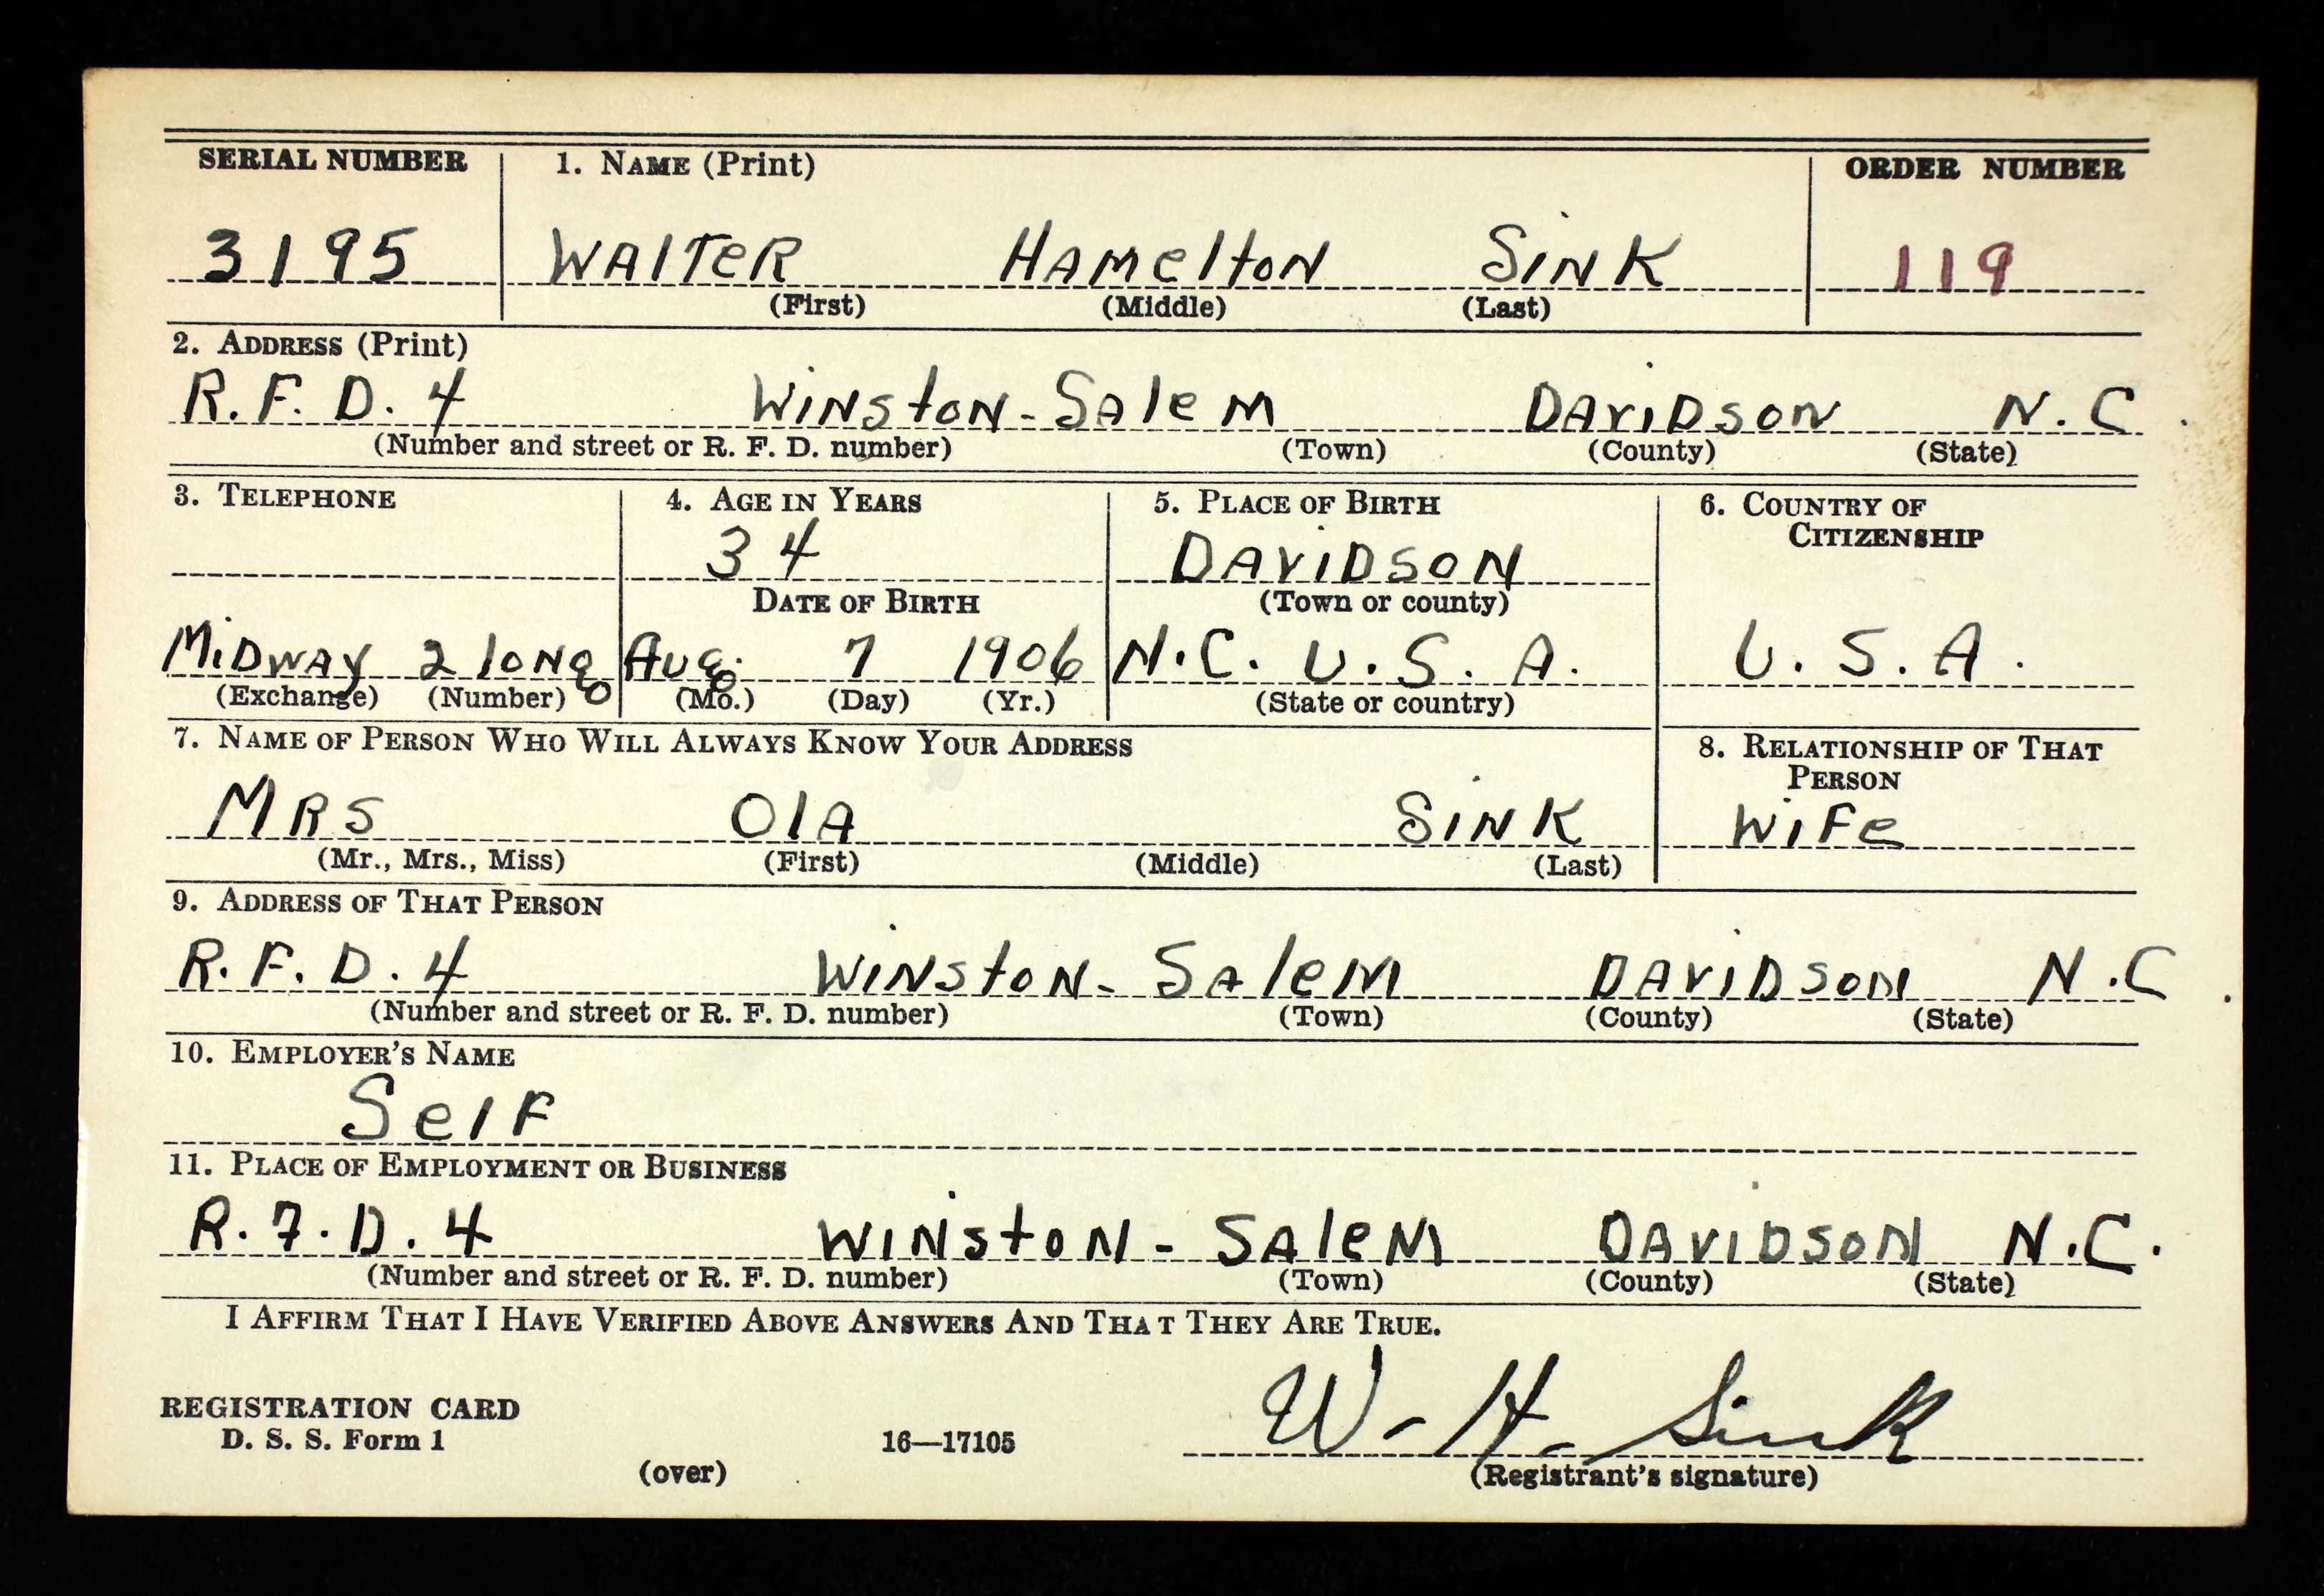 SERIAL NUMBER 1. NAME (Print) ORDER NUMBER
3195 WAlTeR HAMeltoN SiNK 119
(First) (Middle) (Last)
2. ADDRESS (Print)
R.F.D. 4 WiNstoN-SAleM DAViDsoN N.C.
(Number and street or R. F. D. number) (Town) (County) (State)
3. TELEPHONE 4. AGE IN YEARS 5. PLACE OF BIRTH 6. COUNTRY OF
CITIZENSHIP
34 DAViDSoN
DATE OF BIRTH (Town or county)
MiDWAy 2 loNg Aug. 7 1906 N.C. U.S.A. U.S.A.
(Exchange) (Number) (Mo.) (Day) (Yr.) (State or country)
7. NAME OF PERSON WHO WILL ALWAYS KNOW YOUR ADDRESS 8. RELATIONSHIP OF THAT
PERSON
MRS OlA SiNK WiFe
(Mr., Mrs., Miss) (First) (Middle) (Last)
9. ADDRESS OF THAT PERSON
R.F.D.4 WiNstoN-SAleM DAViDsoN N.C.
(Number and street or R. F. D. number) (Town) (County) (State)
10. EMPLOYER'S NAME
SelF
11. PLACE OF EMPLOYMENT OR BUSINESS
R.F.D.4 WiNstoN-SAleM DAViDsoN N.C.
(Number and street or R. F. D. number) (Town) (County) (State)
I AFFIRM THAT I HAVE VERIFIED ABOVE ANSWERS AND THAT THEY ARE TRUE.
REGISTRATION CARD
D. S. S. Form 1 16—17105 W-H-Sink
(over) (Registrant's signature)